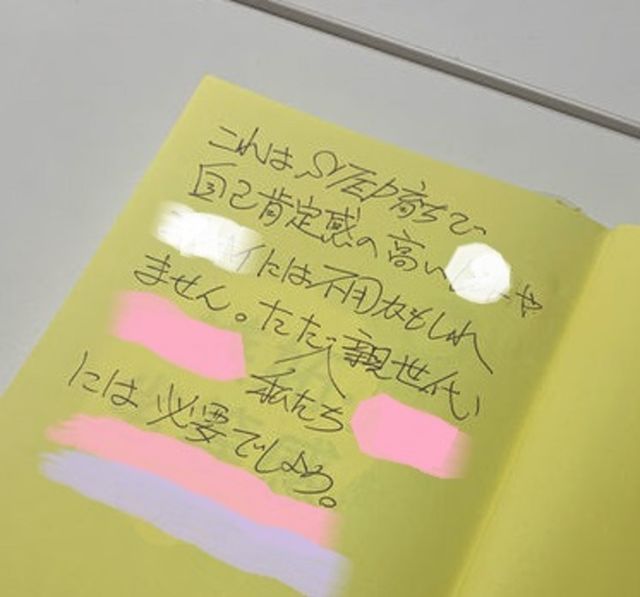 これは STEP育ちで
自己肯定感の高い ーや
イには不用かもしれ
ません。ただ、親世代
私たち
には必要でしょう。